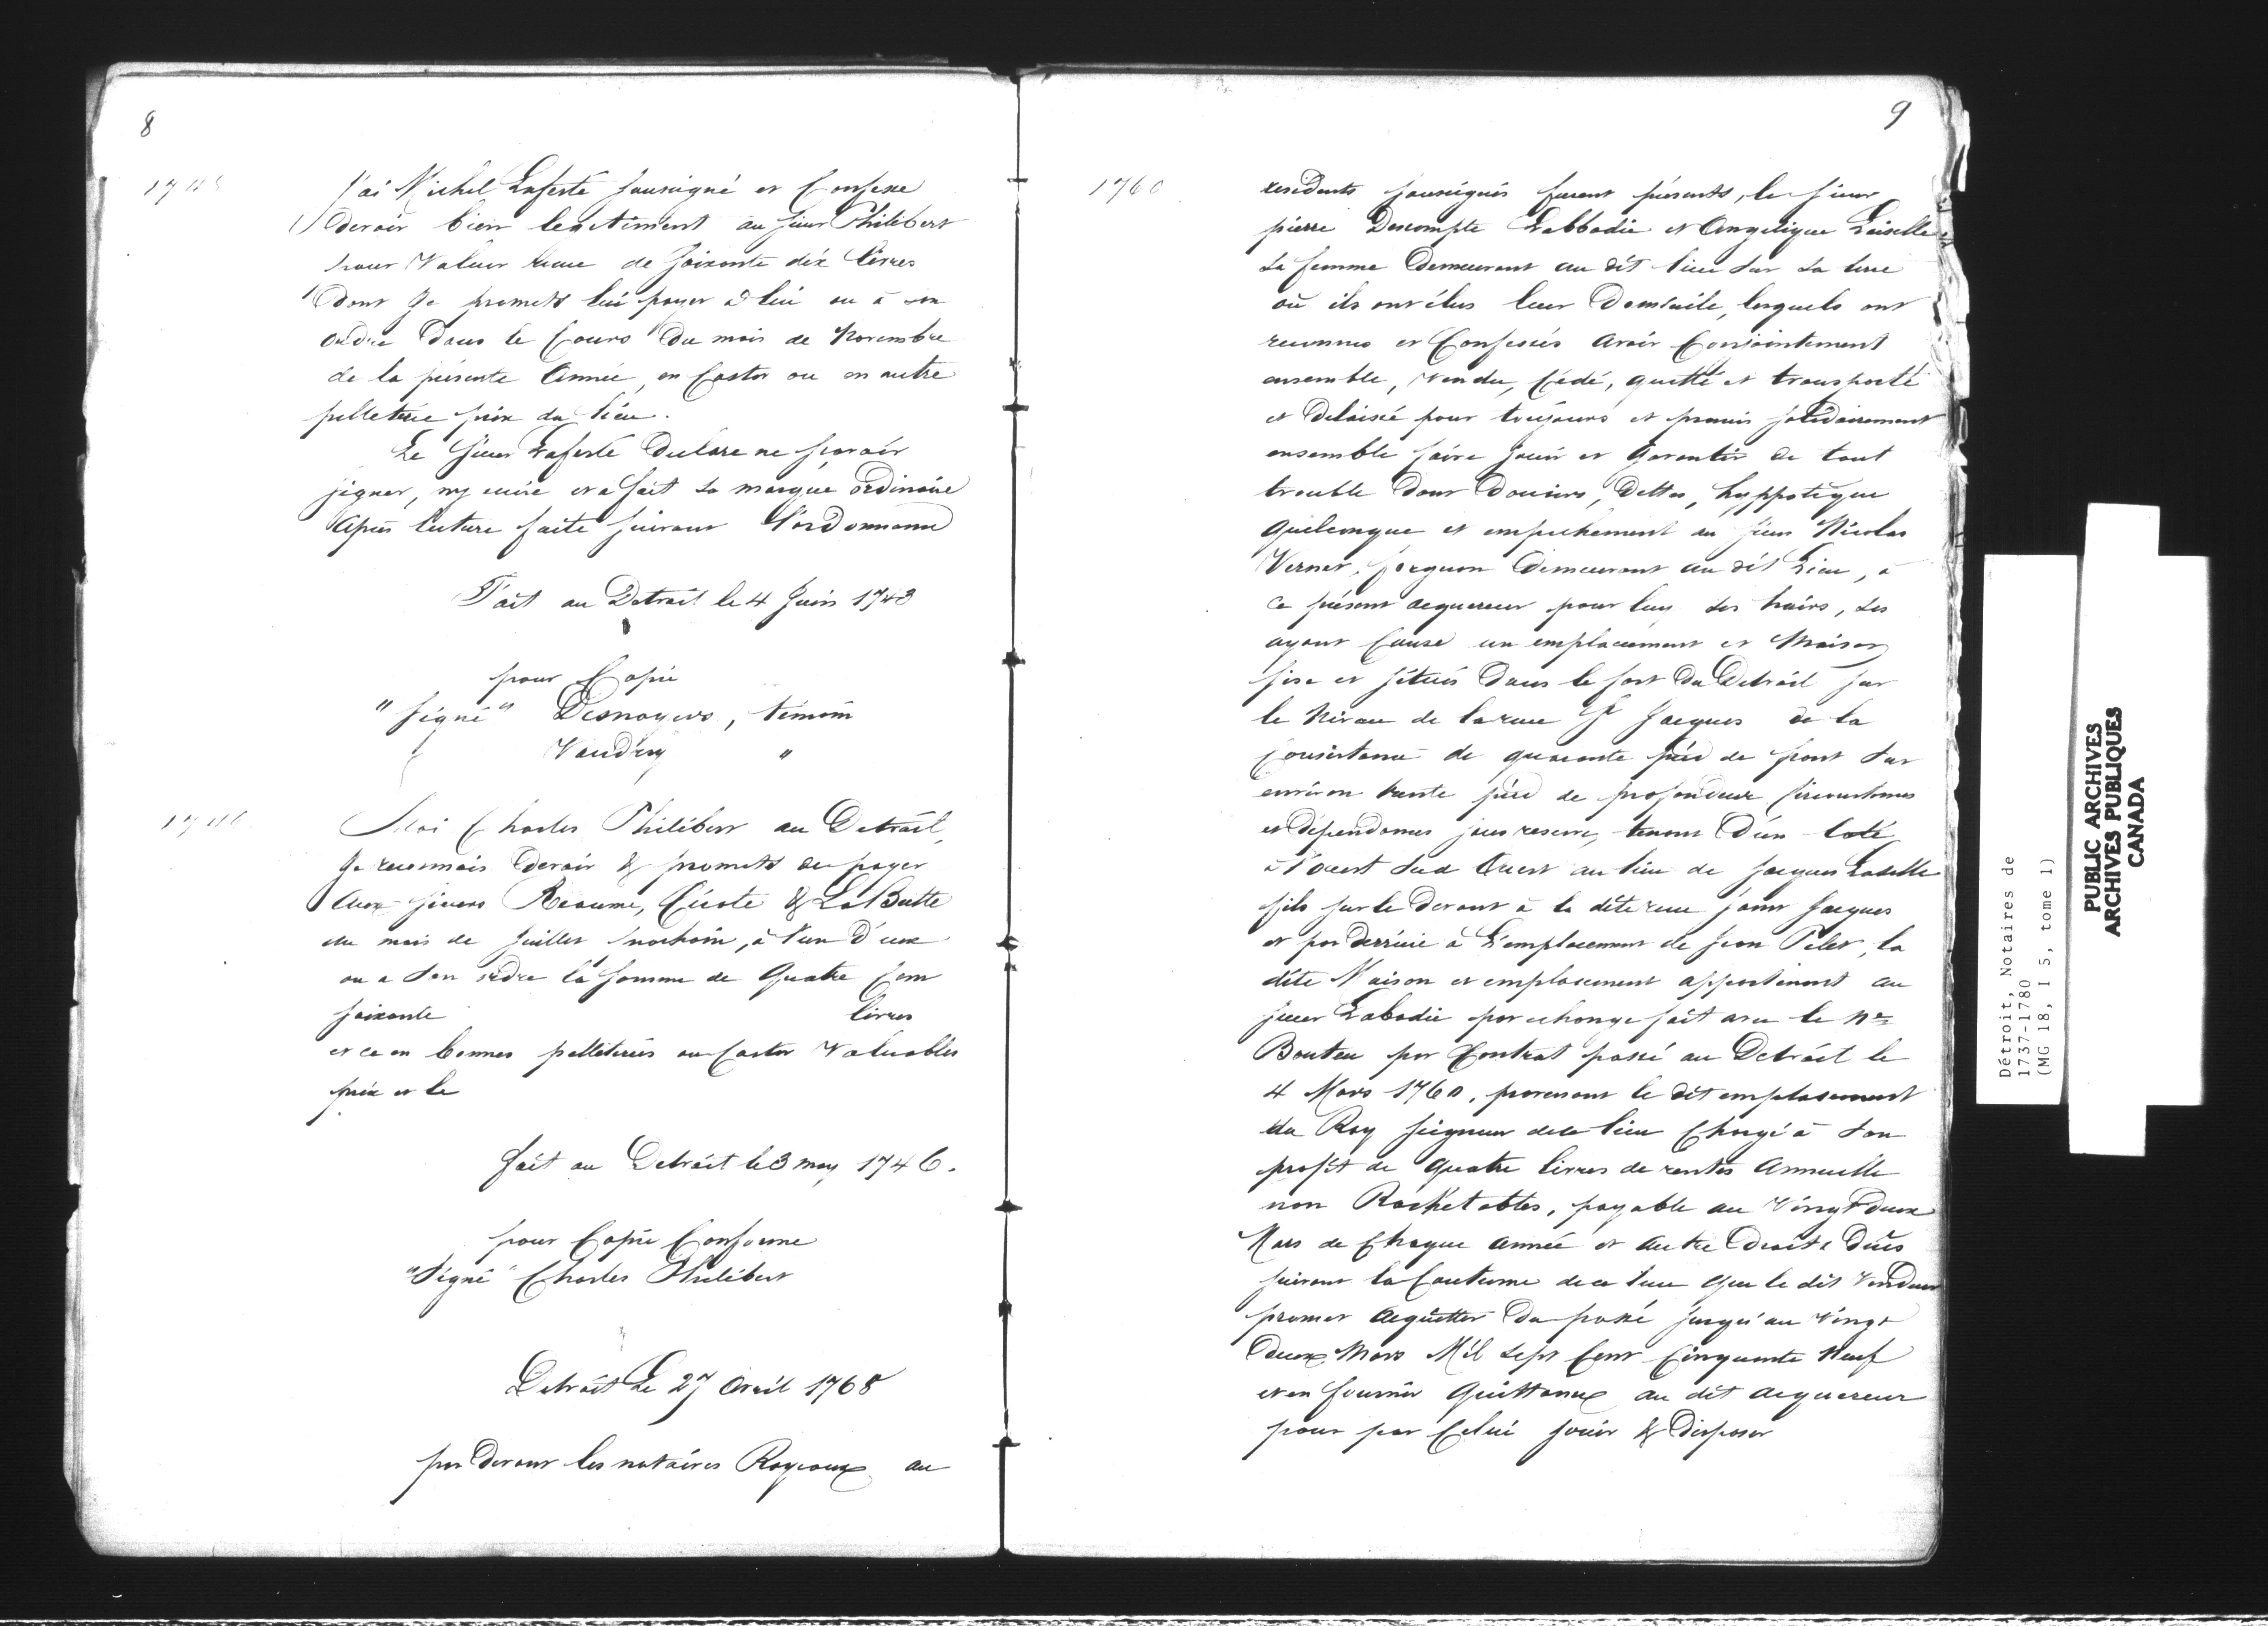 8
1743
J'ai Michel Laferté soussigné et Confesse
devoir bien legitiment au sieur Philibert
pour Valeur recue de soixante dix livres
dont Je promets lui payer à lui ou à son
ordre dans le Cours du mois de Novembre
de la présente Année, en Castor ou en autre
pelleterie prix du lieu.
Le sieur Laferté declare ne scavoir
signer, ny ecrire et a fait sa marque ordinaire
Après lecture faite suivant l'ordonnance
Fait au Detroit le 4 Juin 1743
pour Copie
"signé" Desnoyers, témoin
Vaudry "
1746
Moi Charles Philibert au Detroit,
Je reconnais devoir & promets de payer
Aux sieurs Réaume, Cicote & LaButte
du mois de Juillet prochain, à l'un d'eux
ou a son ordre la somme de Quatre Cent
soixante livres
et ce en bonnes pelleteries ou Castor Valuables
prix et le
fait au Detroit le 3 may 1746.
pour Copie Conforme
"Signé" Charles Philibert
Detroit Le 27 Avril 1768
par devant les notaires Royaux au
9
1760
residents soussignés furent présents, le sieur
pierre Descompte Labbadie et Angelique Laiselle
sa femme demeurant au dit lieu sur sa terre
où ils ont élus leur Domicile, lesquels ont
reconnus et Confessés avoir Conjointement
ensemble, Vendu, Cédé, quitté et transporté
et delaissé pour toujours et promis solidairement
ensemble faire jouir et Garentir de tout
trouble dont Douiers, Dettes, hyppotèque
Quelconque et empechement au sieur Nicolas
Vernet, forgeron demeurant au dit Lieu, à
ce présent acquereur pour luy ses hairs, ses
ayant Cause un emplacement et Maison
sise et situés dans le fort du Detroit sur
le Niveau de la rue St Jacques de la
Consistance de quarante pied de front sur
environ trente pied de profondeur circonstances
et dépendances sans reserve, tenant d'un coté
à l'ouest Sud Ouest au lieu de Jacques Laselle
fils sur le devant à la dite rue saint Jacques
et par derriere à L'emplacement de Jean Pilet, la
dite Maison et emplacement appartenant au
sieur Labadie par echange fait avec le Nre
Bouton par Contrat passé au Detroit le
4 Mars 1760, provenant le dit emplasement
du Roy seigneur de ce lieu Chargé à son
profit de Quatre livres de rentes Annuelle
non Rachetables, payable au Vingt deux
Mars de Chaque Année et autre droits dûs
suivant la Coutume de ce lieu que le dit Vendeur
promet Acquitter du passé jusqu'au Vingt
deux Mars Mil sept Cent Cinquante Neuf
et en fournir Quittance au dit acquereur
pour par Celui jouir & Disposer
Détroit, Notaires de
1737-1780
(MG 18, I 5, tome 1)
PUBLIC ARCHIVES
ARCHIVES PUBLIQUES
CANADA